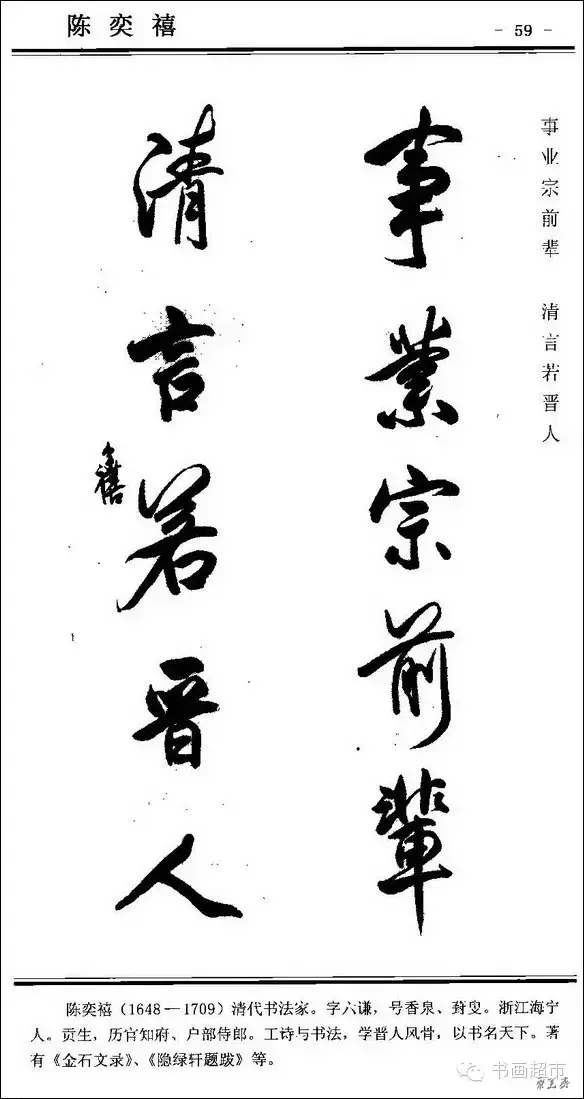 陈奕禧
- 59 -
事业宗前辈 清言若晋人
事業宗前輩
清言若晋人
禧
陈奕禧(1648—1709)清代书法家。字六谦,号香泉、葑叟。浙江海宁
人。贡生,历官知府、户部侍郎。工诗与书法,学晋人风骨,以书名天下。著
有《金石文录》、《隐绿轩题跋》等。
书画超市